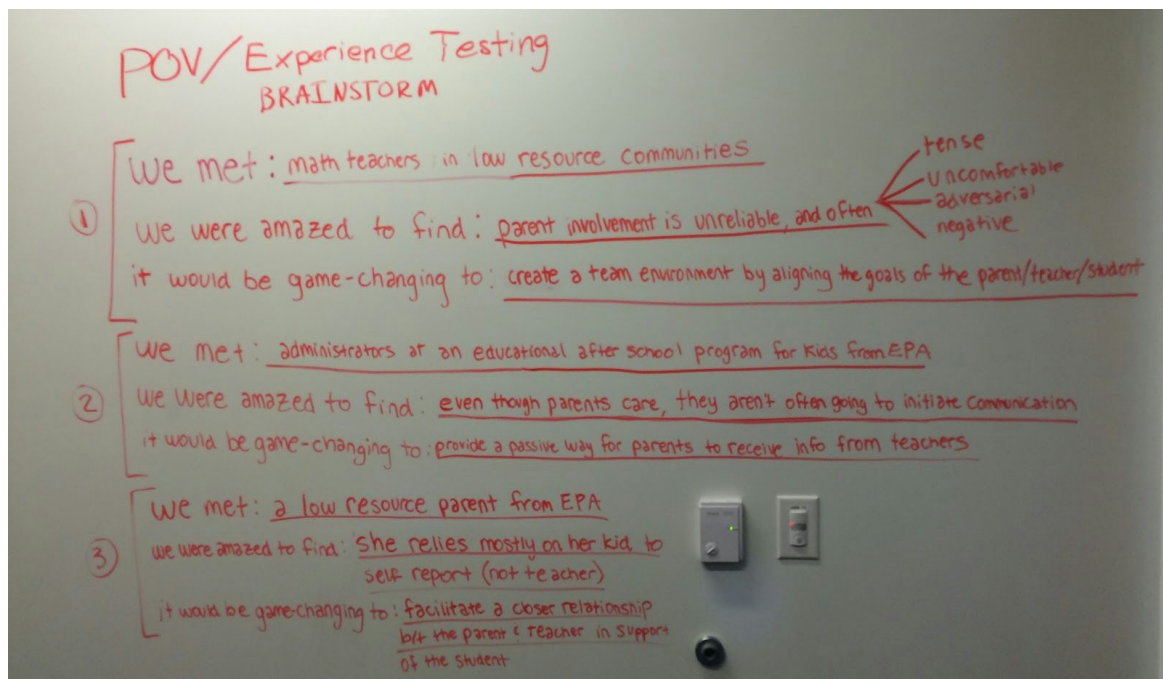 POV/Experience Testing
BRAINSTORM
① we met: math teachers in low resource communities
we were amazed to find: parent involvement is unreliable, and often
tense
uncomfortable
adversarial
negative
it would be game-changing to: create a team environment by aligning the goals of the parent/teacher/student
② we met: administrators at an educational after school program for kids from EPA
we were amazed to find: even though parents care, they aren't often going to initiate communication
it would be game-changing to: provide a passive way for parents to receive info from teachers
③ we met: a low resource parent from EPA
we were amazed to find: She relies mostly on her kid to
self report (not teacher)
it would be game-changing to: facilitate a closer relationship
b/t the parent & teacher in support
of the student